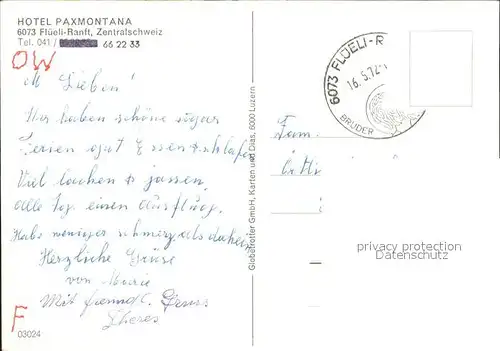 HOTEL PAXMONTANA
6073 Flüeli-Ranft, Zentralschweiz
Tel. 041 / 66 22 33
OW
M Lieben!
Wir haben schöne
Ferien gut Essen & schlafen
Viel lachen & jassen.
Alle Tag einen Ausflug.
Habe weniger schmerz als daheim
Herzliche Grüse
von Marie
Mit freundl. Gruss
F
03024
Globetrotter GmbH, Karten und Dias, 6000 Luzern
6073 FLÜELI-R
16.5.72
BRUDER
Fam.
privacy protection
Datenschutz